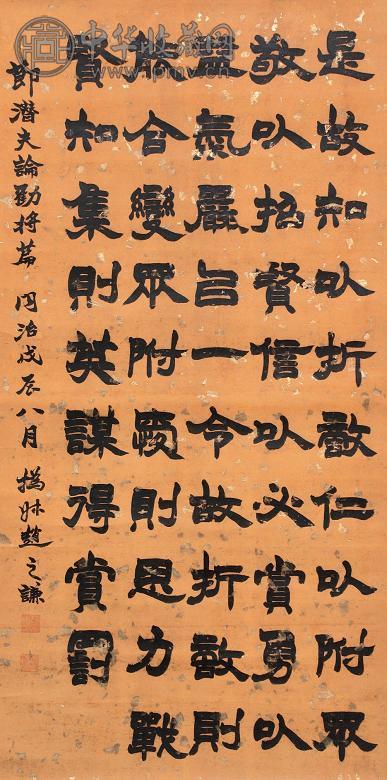 中华收藏网
是故知以折敵仁以附眾
敬以招賢信以必賞勇以
益氣嚴㠯一令故折敵則
能合變眾附愛則思力戰
賢知集則英謀得賞罰
節潛夫論勸將篇 同治戊辰八月 撝叔趙之謙